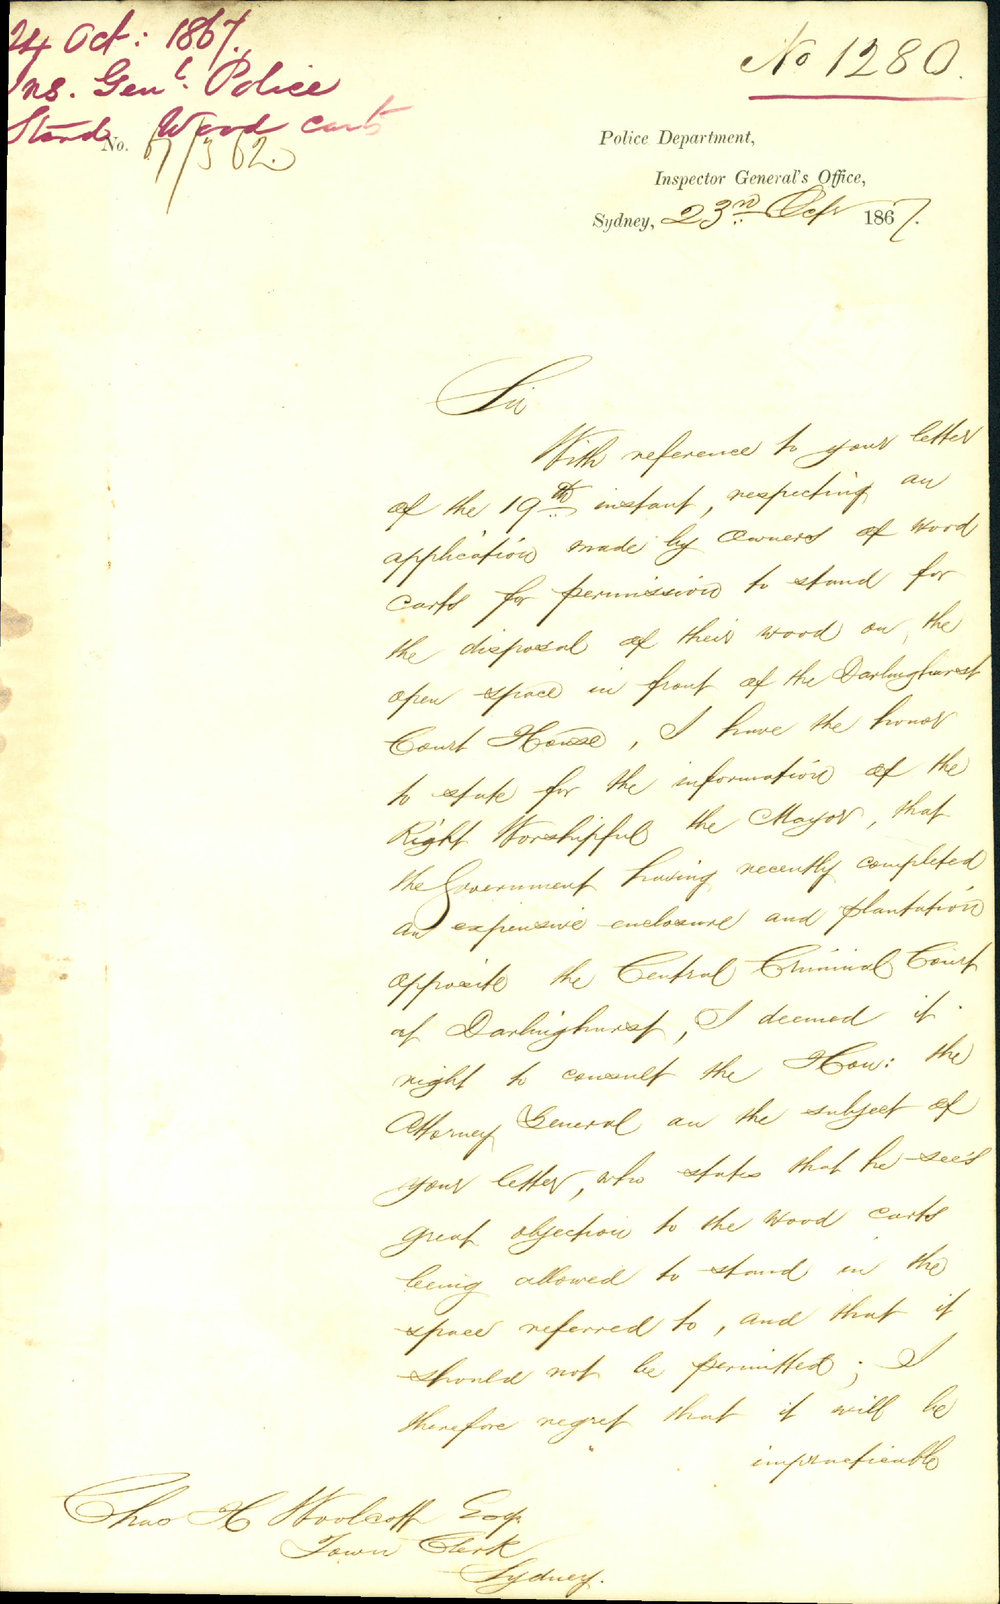 24 Oct: 1867.
Ins. Genl. Police
Stand Wood carts
No 1280.
No. 67/362.
Police Department,
Inspector General's Office,
Sydney, 23rd Octr 1867.
Sir
With reference to your letter
of the 19th instant, respecting an
application made by Owners of wood
carts for permission to stand for
the disposal of their wood on the
open space in front of the Darlinghurst
Court House, I have the honor
to state for the information of the
Right Worshipful the Mayor, that
the Government having recently completed
an expensive enclosure and plantation
opposite the Central Criminal Court
at Darlinghurst, I deemed it
right to consult the Hon: the
Attorney General on the subject of
your letter, who states that he see's
great objection to the wood carts
being allowed to stand in the
space referred to, and that it
should not be permitted; I
therefore regret that it will be
impracticable
Chas H Woolcott Esqr.
Town Clerk
Sydney.